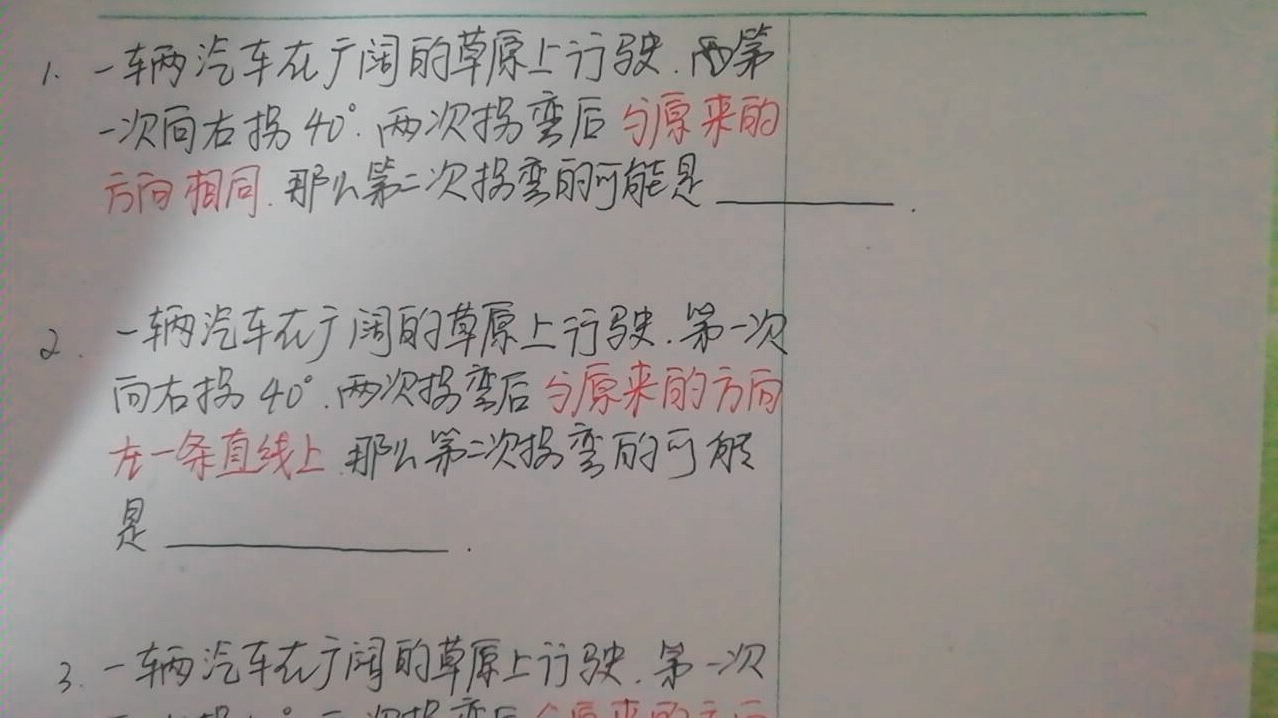 1. 一车两汽车在广阔的草原上行驶.第
一次向右拐40°.两次拐弯后与原来的
方向相同.那么第二次拐弯的可能是______.
2. 一辆汽车在广阔的草原上行驶.第一次
向右拐40°.两次拐弯后与原来的方向
在一条直线上.那么第二次拐弯的可能
是______.
3. 一辆汽车在广阔的草原上行驶.第一次
次拐弯后与原来的方向